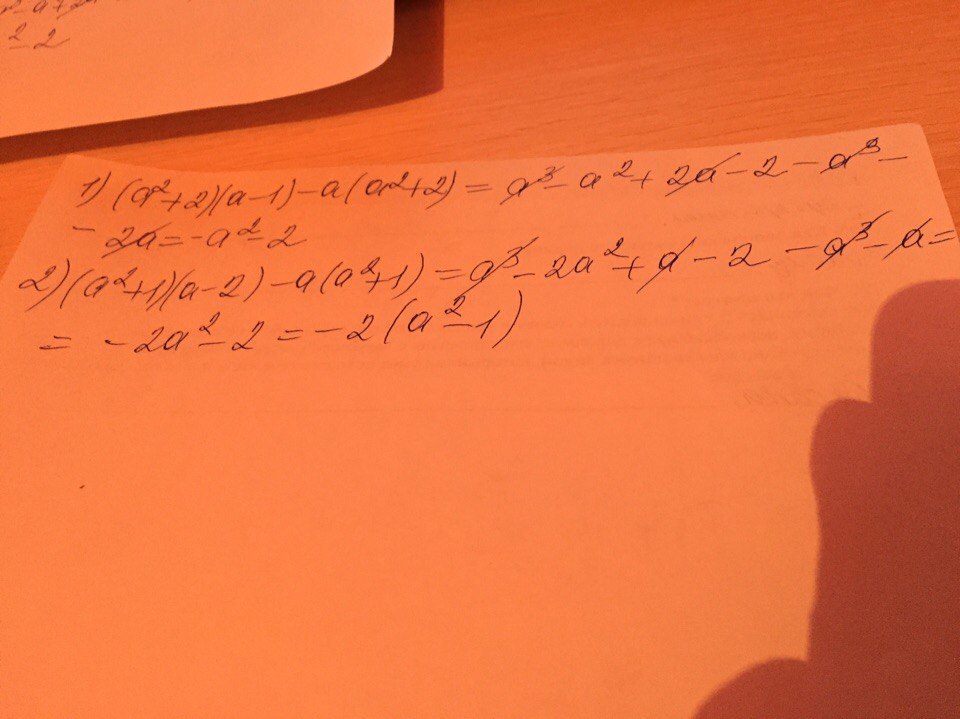 ² - 2
1) (a²+2)(a-1)-a(a²+2) = a³-a²+2a-2-a³-
- 2a=-a²-2
2) (a²+1)(a-2)-a(a²+1) = a³-2a²+a-2-a³-a=
= -2a²-2 = -2(a²-1)